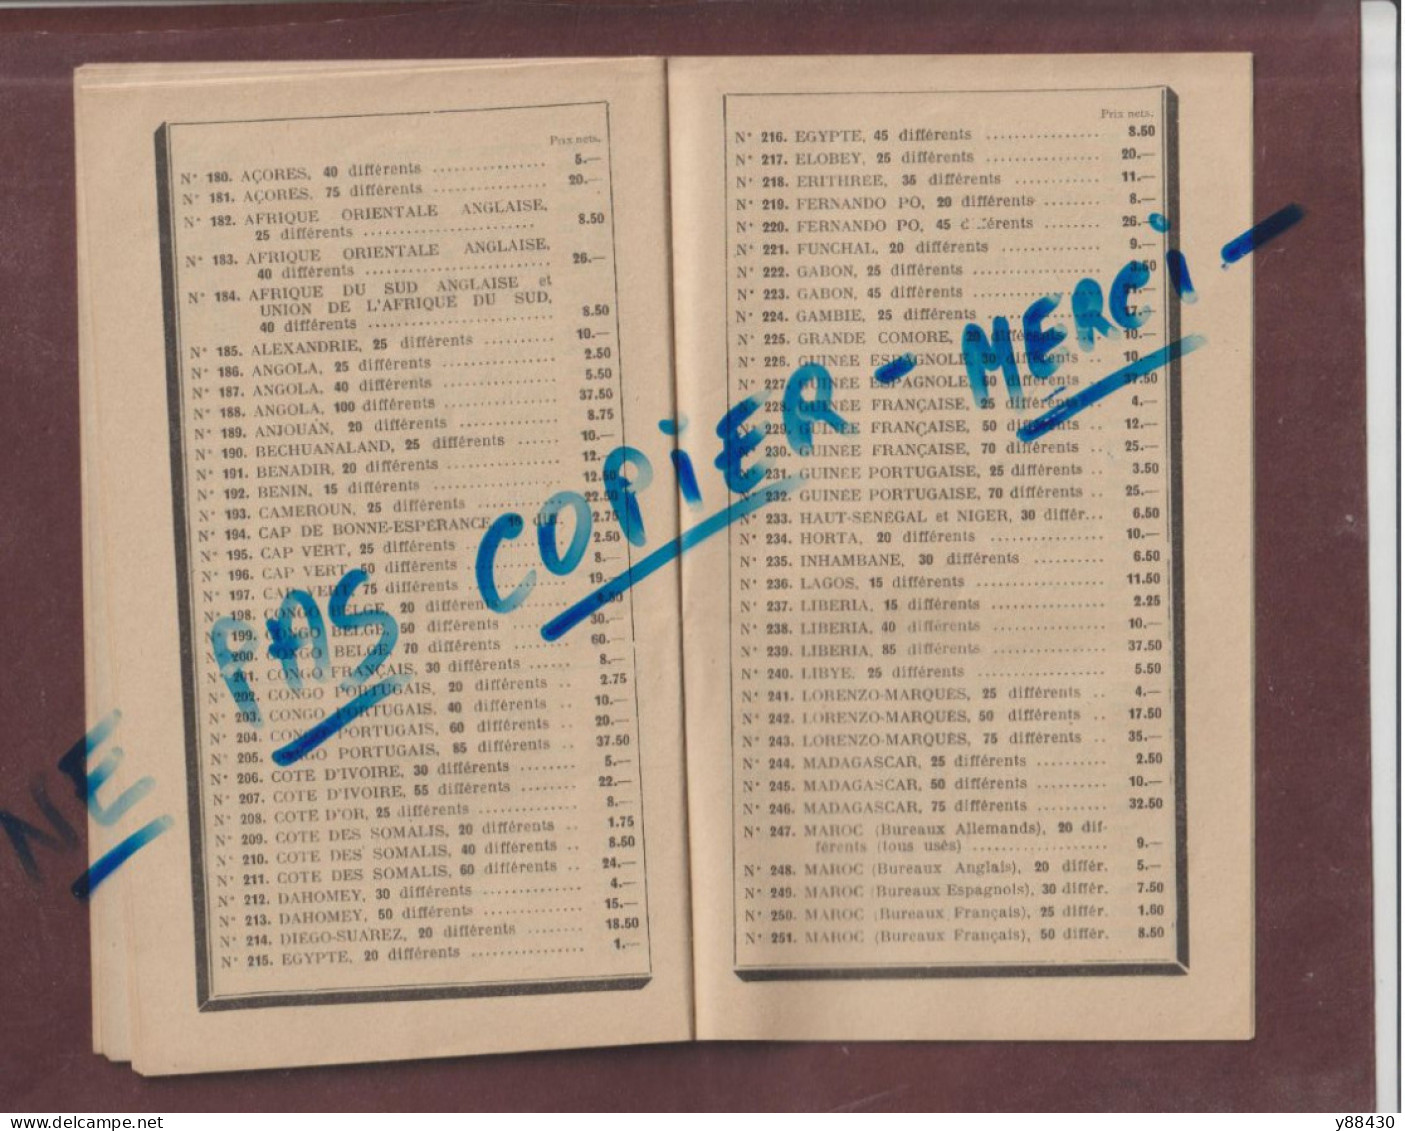 Prix nets.
N° 180. AÇORES, 40 différents ................ 5.—
N° 181. AÇORES, 75 différents ................ 20.—
N° 182. AFRIQUE ORIENTALE ANGLAISE,
25 différents ........................ 8.50
N° 183. AFRIQUE ORIENTALE ANGLAISE,
40 différents .......................... 26.—
N° 184. AFRIQUE DU SUD ANGLAISE et
UNION DE L'AFRIQUE DU SUD,
40 différents .......................... 8.50
N° 185. ALEXANDRIE, 25 différents .......... 10.—
N° 186. ANGOLA, 25 différents ................ 2.50
N° 187. ANGOLA, 40 différents ................ 5.50
N° 188. ANGOLA, 100 différents ................ 37.50
N° 189. ANJOUAN, 20 différents .............. 8.75
N° 190. BECHUANALAND, 25 différents ...... 10.—
N° 191. BENADIR, 20 différents ................ 12.—
N° 192. BENIN, 15 différents .................. 12.50
N° 193. CAMEROUN, 25 différents ............ 22.50
N° 194. CAP DE BONNE-ESPÉRANCE, 15 dif. 2.75
N° 195. CAP VERT, 25 différents .............. 2.50
N° 196. CAP VERT, 50 différents .............. 8.—
N° 197. CAP VERT, 75 différents .............. 19.—
N° 198. CONGO BELGE, 20 différents
N° 199. CONGO BELGE, 50 différents ........ 30.—
N° 200. CONGO BELGE, 70 différents ........ 60.—
N° 201. CONGO FRANÇAIS, 30 différents ...... 8.—
N° 202. CONGO PORTUGAIS, 20 différents .. 2.75
N° 203. CONGO PORTUGAIS, 40 différents .. 10.—
N° 204. CONGO PORTUGAIS, 60 différents .. 20.—
N° 205. CONGO PORTUGAIS, 85 différents .. 37.50
N° 206. COTE D'IVOIRE, 30 différents ........ 5.—
N° 207. COTE D'IVOIRE, 55 différents ........ 22.—
N° 208. COTE D'OR, 25 différents ............ 8.—
N° 209. COTE DES SOMALIS, 20 différents .. 1.75
N° 210. COTE DES SOMALIS, 40 différents .. 8.50
N° 211. COTE DES SOMALIS, 60 différents .. 24.—
N° 212. DAHOMEY, 30 différents .............. 4.—
N° 213. DAHOMEY, 50 différents .............. 15.—
N° 214. DIEGO-SUAREZ, 20 différents ........ 18.50
N° 215. EGYPTE, 20 différents ................ 1.—
Prix nets.
N° 216. EGYPTE, 45 différents ................ 8.50
N° 217. ELOBEY, 25 différents ................ 20.—
N° 218. ERITHRÉE, 35 différents ............ 11.—
N° 219. FERNANDO PO, 20 différents ........ 8.—
N° 220. FERNANDO PO, 45 différents ........ 26.—
N° 221. FUNCHAL, 20 différents .............. 9.—
N° 222. GABON, 25 différents ................ 3.50
N° 223. GABON, 45 différents ................ 21.—
N° 224. GAMBIE, 25 différents ................ 17.—
N° 225. GRANDE COMORE, 20 différents .... 10.—
N° 226. GUINÉE ESPAGNOLE, 30 différents .. 10.—
N° 227. GUINÉE ESPAGNOLE, 60 différents .. 37.50
N° 228. GUINÉE FRANÇAISE, 25 différents .. 4.—
N° 229. GUINÉE FRANÇAISE, 50 différents .. 12.—
N° 230. GUINÉE FRANÇAISE, 70 différents .. 25.—
N° 231. GUINÉE PORTUGAISE, 25 différents .. 3.50
N° 232. GUINÉE PORTUGAISE, 70 différents .. 25.—
N° 233. HAUT-SÉNÉGAL et NIGER, 30 différ... 6.50
N° 234. HORTA, 20 différents ................ 10.—
N° 235. INHAMBANE, 30 différents .......... 6.50
N° 236. LAGOS, 15 différents ................ 11.50
N° 237. LIBERIA, 15 différents .............. 2.25
N° 238. LIBERIA, 40 différents .............. 10.—
N° 239. LIBERIA, 85 différents .............. 37.50
N° 240. LIBYE, 25 différents ................ 5.50
N° 241. LORENZO-MARQUÈS, 25 différents .. 4.—
N° 242. LORENZO-MARQUÈS, 50 différents .. 17.50
N° 243. LORENZO-MARQUÈS, 75 différents .. 35.—
N° 244. MADAGASCAR, 25 différents ........ 2.50
N° 245. MADAGASCAR, 50 différents ........ 10.—
N° 246. MADAGASCAR, 75 différents ........ 32.50
N° 247. MAROC (Bureaux Allemands), 20 dif-
férents (tous usés) .................... 9.—
N° 248. MAROC (Bureaux Anglais), 20 différ. 5.—
N° 249. MAROC (Bureaux Espagnols), 30 différ. 7.50
N° 250. MAROC (Bureaux Français), 25 différ. 1.60
N° 251. MAROC (Bureaux Français), 50 différ. 8.50
NE PAS COPIER - MERCI -
www.delcampe.net
y88430